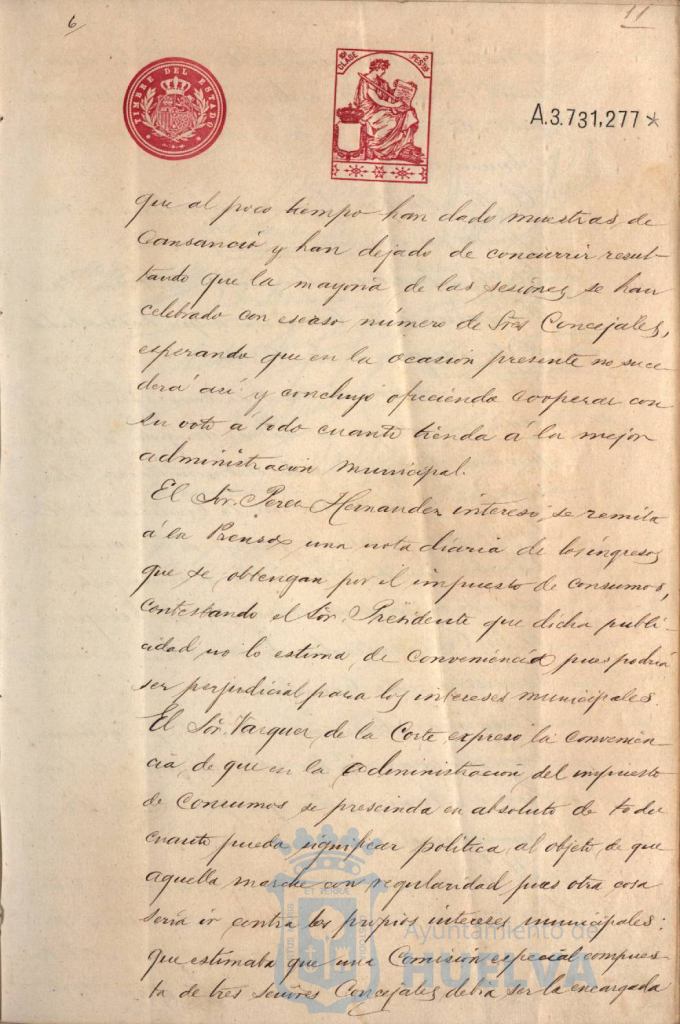 6
11
TIMBRE DEL ESTADO
CLASE
2 PESTAS
A.3.731,277*
que al poco tiempo han dado muestras de
cansancio y han dejado de concurrir resul-
tando que la mayoria de las sesiones se han
celebrado con escaso número de Sres Concejales,
esperando que en la ocasión presente no suce-
derá así y concluyó ofreciendo cooperar con
su voto á todo cuanto tienda á la mejor
administración municipal.
El Sor. Perez Hernandez interesó, se remita
á la Prensa una nota diaria de los ingresos
que se obtengan por el impuesto de consumos,
contestando el Sor. Presidente que dicha publi-
cidad no lo estima de conveniencia, pues podria
ser perjudicial para los intereses municipales.
El Sor. Vazquez de la Corte, expresó la convenien-
cia, de que en la administración del impuesto
de consumos se prescinda en absoluto de todo
cuanto pueda significar política, al objeto de que
aquella marche con regularidad pues otra cosa
seria ir contra los propios intereses municipales;
que estimaba que una Comisión especial compues-
ta de tres señores Concejales debia ser la encargada
Ayuntamiento de
HUELVA